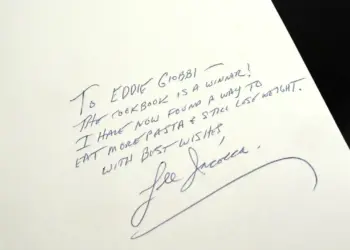 To EDDIE GIOBBI —
THE COOKBOOK IS A WINNER!
I HAVE NOW FOUND A WAY TO
EAT MORE PASTA & STILL LOSE WEIGHT.
WITH BEST WISHES,
Lee Iacocca.